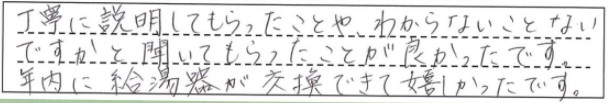 丁寧に説明してもらったことや、わからないことない
ですかと聞いてもらったことが良かったです。
年内に給湯器が交換できて嬉しかったです。